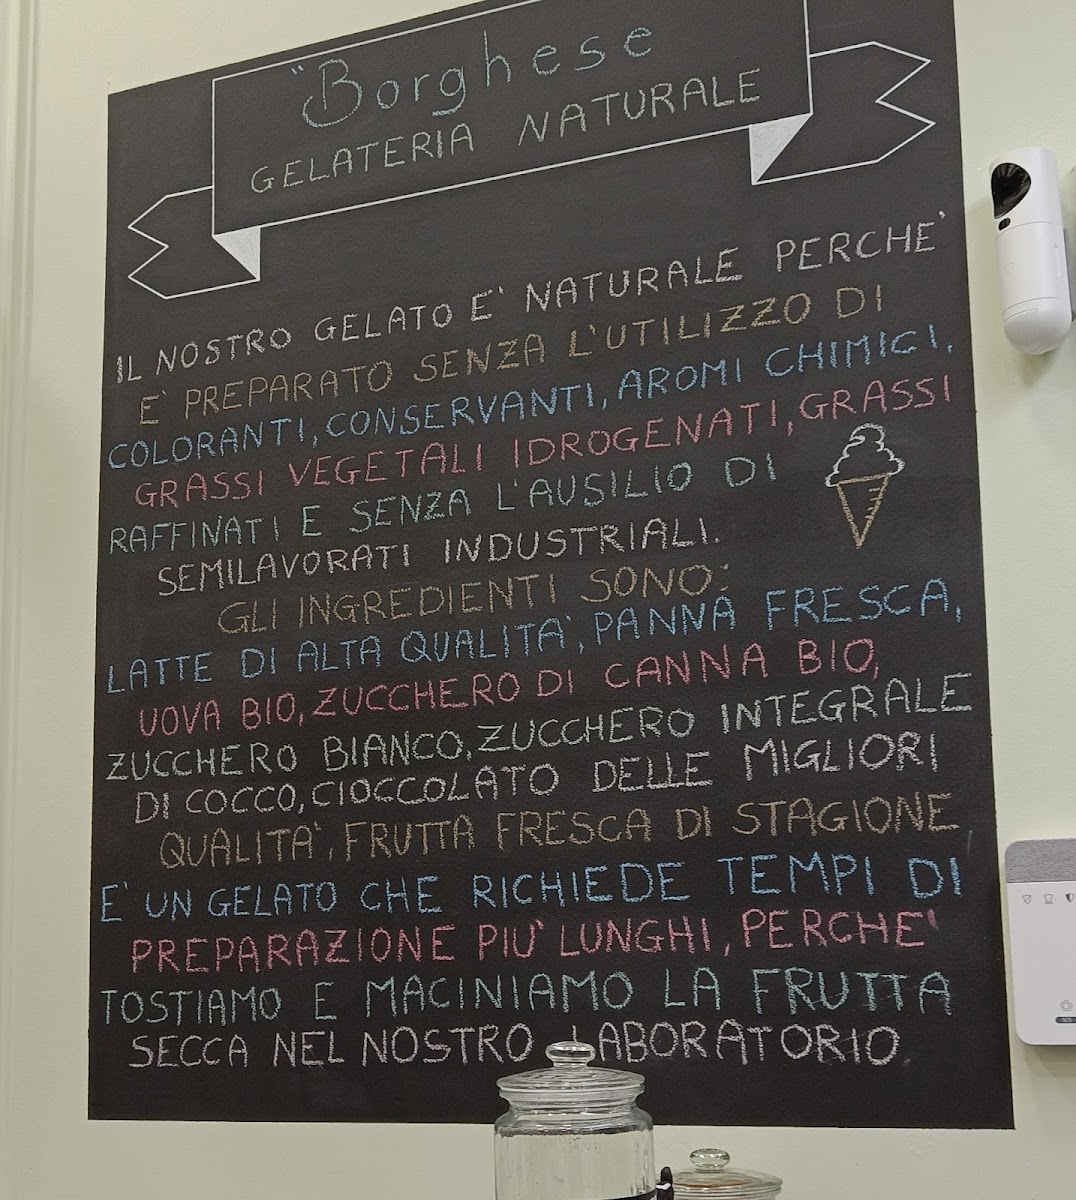 "Borghese
GELATERIA NATURALE
IL NOSTRO GELATO E' NATURALE PERCHE'
E' PREPARATO SENZA L'UTILIZZO DI
COLORANTI, CONSERVANTI, AROMI CHIMICI,
GRASSI VEGETALI IDROGENATI, GRASSI
RAFFINATI E SENZA L'AUSILIO DI
SEMILAVORATI INDUSTRIALI.
GLI INGREDIENTI SONO:
LATTE DI ALTA QUALITA', PANNA FRESCA,
UOVA BIO, ZUCCHERO DI CANNA BIO,
ZUCCHERO BIANCO, ZUCCHERO INTEGRALE
DI COCCO, CIOCCOLATO DELLE MIGLIORI
QUALITA', FRUTTA FRESCA DI STAGIONE
E' UN GELATO CHE RICHIEDE TEMPI DI
PREPARAZIONE PIU' LUNGHI, PERCHE'
TOSTIAMO E MACINIAMO LA FRUTTA
SECCA NEL NOSTRO LABORATORIO